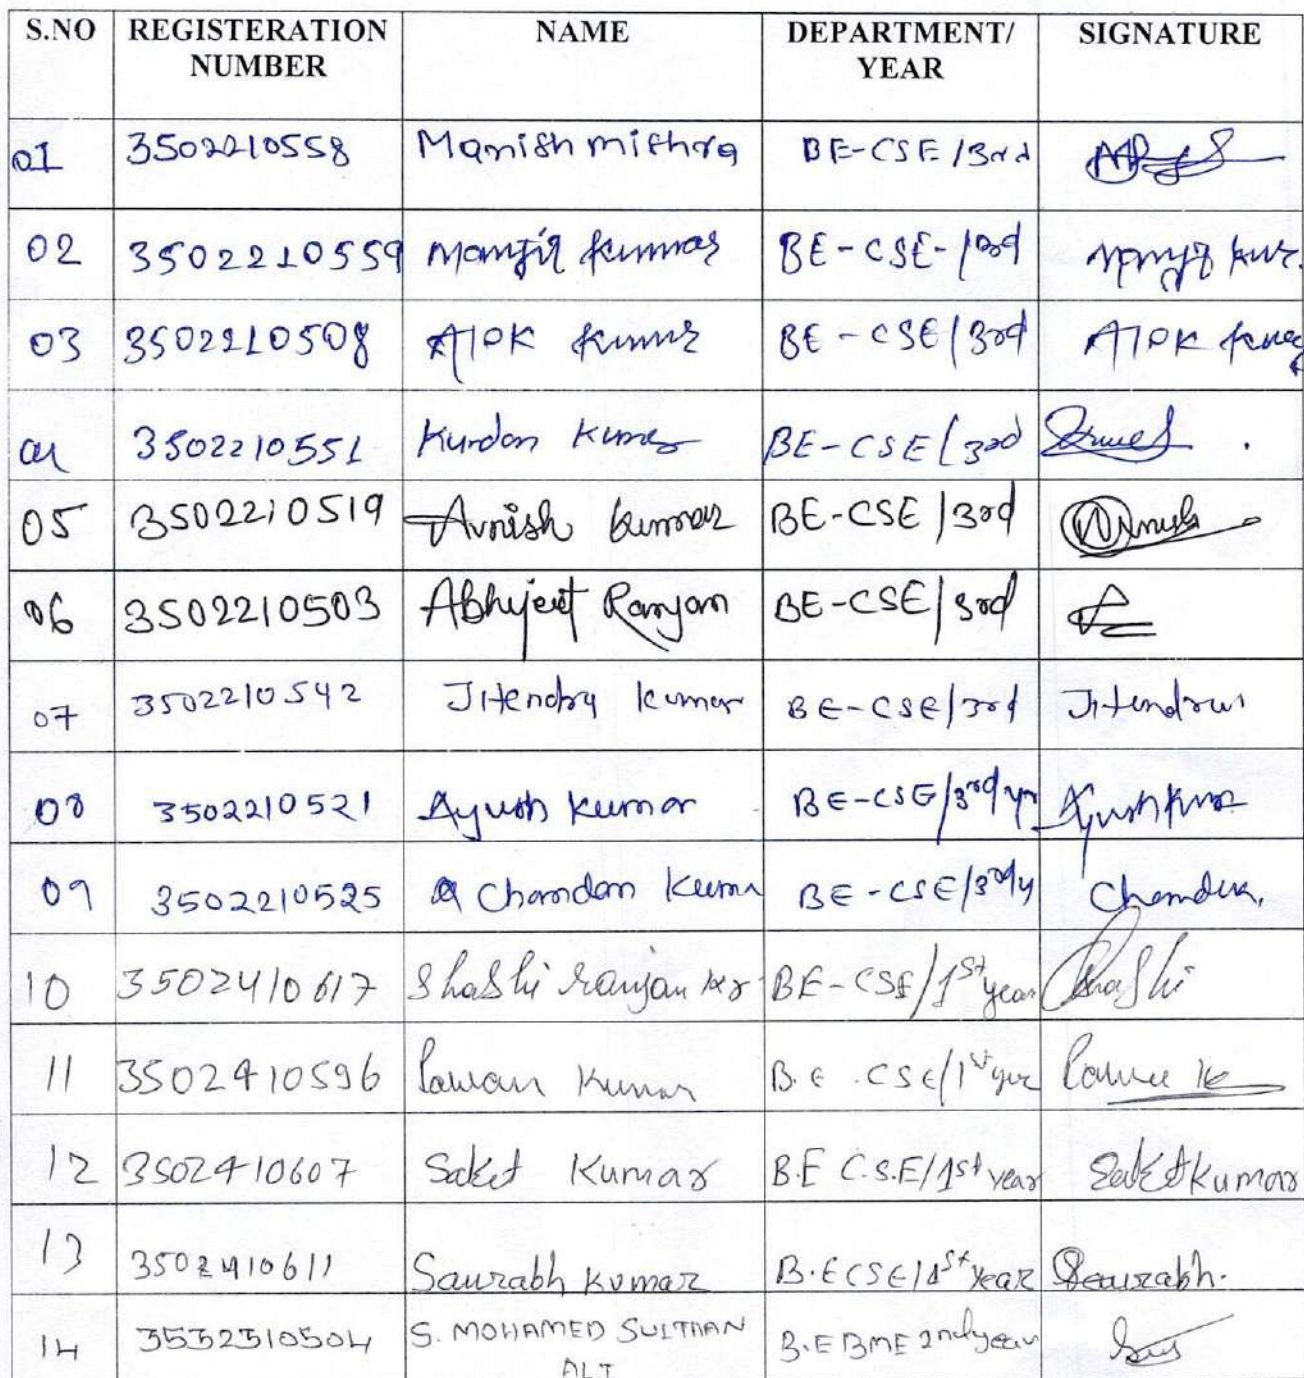 S.NO REGISTERATION NUMBER NAME DEPARTMENT/ YEAR SIGNATURE
01 3502210558 Manish mithra BE-CSE /3rd
02 3502210559 Manjit kumar BE-CSE-/3rd
03 3502210508 Alok kumar BE-CSE/3rd Alok
04 3502210551 Kundan Kumar BE-CSE/3rd
05 3502210519 Avnish kumar BE-CSE/3rd
06 3502210503 Abhijeet Ranjan BE-CSE/3rd
07 3502210542 Jitendra kumar BE-CSE/3rd
08 3502210521 Ayush kumar BE-CSE/3rd yr Ayush
09 3502210525 Chandan Kumar BE-CSE/3rd y
10 3502410617 Shashi ranjan kr BE-CSE/1st year Shashi
11 3502410596 Pawan Kumar B.E. CSE/1st year
12 3502410607 Saket Kumar B.E C.S.E/1st year Saket Kumar
13 3502410611 Saurabh Kumar B.E CSE/1st year Saurabh.
14 3532310504 S. MOHAMED SULTHAN ALI B.E BME 2nd year